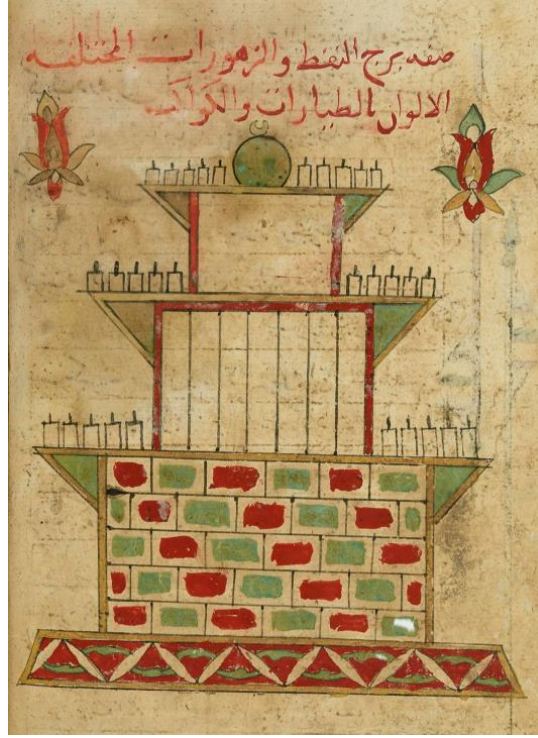 صفه برج النفط والزهورات المختلفه
الالوان بالطيارات والكواكب